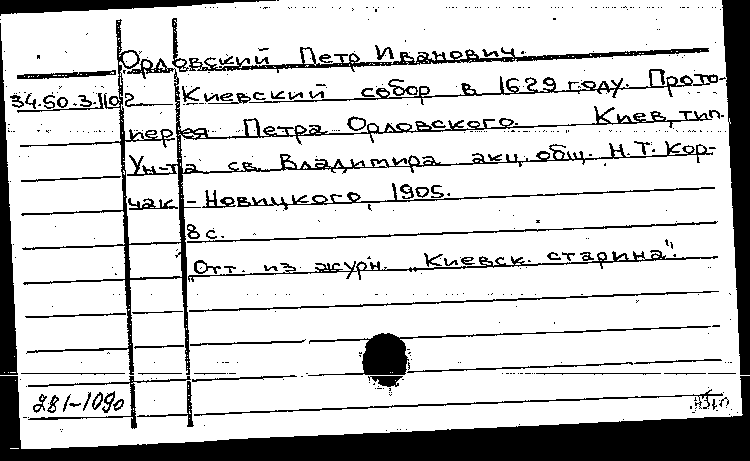 Орловский, Петр Иванович.
34.50.3.1102 Киевский собор в 1629 году. Прото-
иерея Петра Орловского. Киев, тип.
Ун-та св. Владимира акц. общ. Н.Т. Кор-
чак-Новицкого, 1905.
8 с.
Отт. из журн. „Киевск. старина".
281-1090